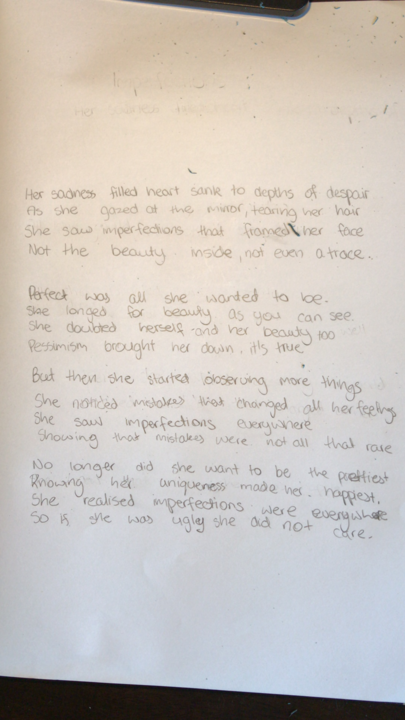 Her sadness filled heart sank to depths of despair
As she gazed at the mirror, tearing her hair
She saw imperfections that framed her face
Not the beauty inside, not even a trace.
Perfect was all she wanted to be.
She longed for beauty as you can see.
She doubted herself and her beauty too
Pessimism brought her down, it's true
But then she started observing more things
She noticed mistakes that changed all her feelings
She saw imperfections everywhere
Showing that mistakes were not all that rare
No longer did she want to be the prettiest
Knowing her uniqueness made her happiest.
She realised imperfections were everywhere
So if she was ugly she did not care.